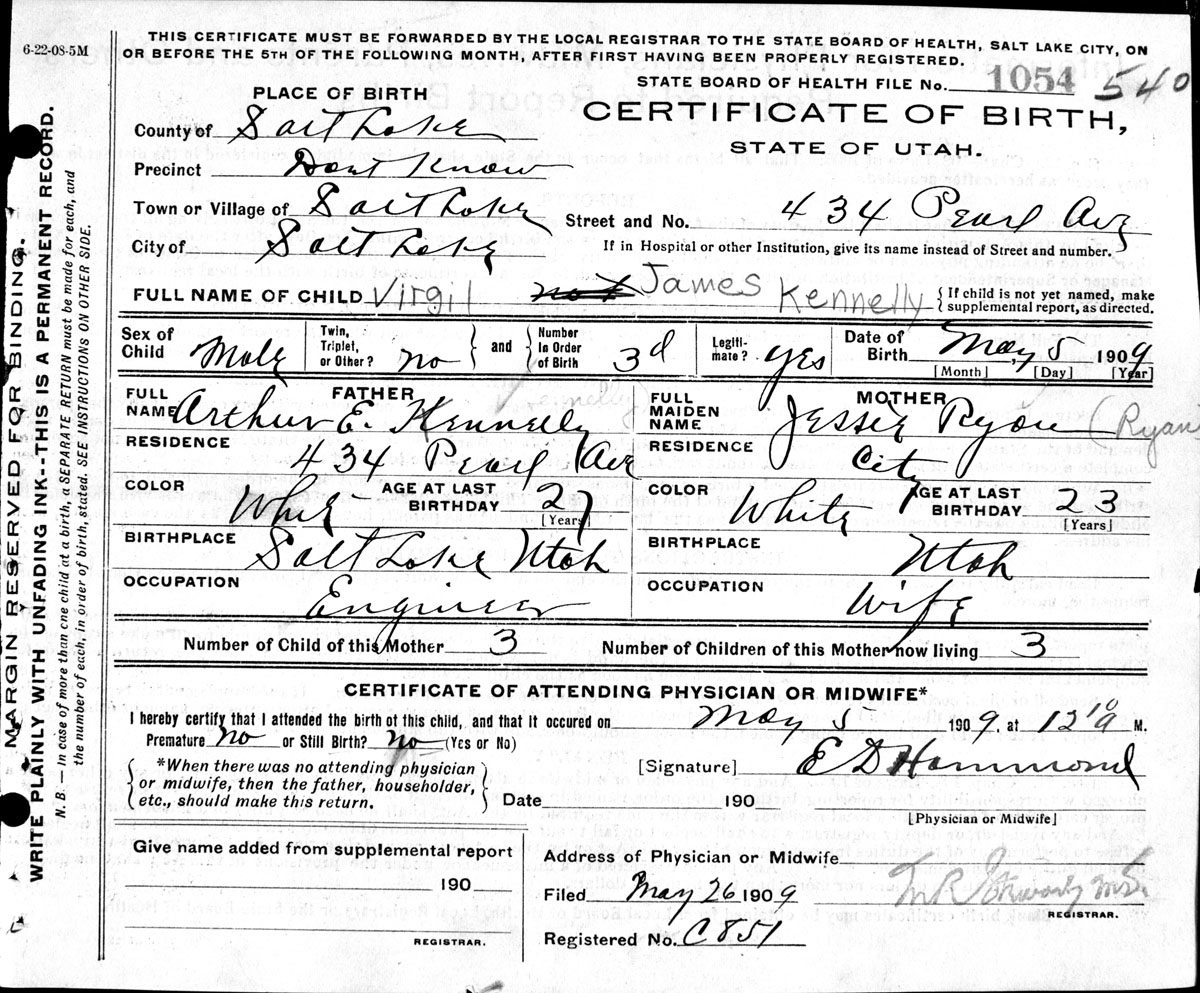 6-22-08-5M
THIS CERTIFICATE MUST BE FORWARDED BY THE LOCAL REGISTRAR TO THE STATE BOARD OF HEALTH, SALT LAKE CITY, ON
OR BEFORE THE 5TH OF THE FOLLOWING MONTH, AFTER FIRST HAVING BEEN PROPERLY REGISTERED.
STATE BOARD OF HEALTH FILE No. 1054 540
PLACE OF BIRTH
CERTIFICATE OF BIRTH,
STATE OF UTAH.
County of Salt Lake
Precinct Dont Know
Town or Village of Salt Lake
Street and No. 434 Pearl Ave
City of Salt Lake
If in Hospital or other Institution, give its name instead of Street and number.
FULL NAME OF CHILD Virgil not James Kennelly { If child is not yet named, make supplemental report, as directed.
Sex of Child Male Twin, Triplet, or Other? no } and { Number in Order of Birth 3d Legitimate? yes Date of Birth May 5 1909
[Month] [Day] [Year]
FATHER
FULL NAME Arthur E. Kennelly
RESIDENCE 434 Pearl Ave
COLOR White AGE AT LAST BIRTHDAY 27
[Years]
BIRTHPLACE Salt Lake Utah
OCCUPATION Engineer
MOTHER
FULL MAIDEN NAME Jessie Ryan (Ryan)
RESIDENCE City
COLOR White AGE AT LAST BIRTHDAY 23
[Years]
BIRTHPLACE Utah
OCCUPATION Wife
Number of Child of this Mother 3 Number of Children of this Mother now living 3
CERTIFICATE OF ATTENDING PHYSICIAN OR MIDWIFE*
I hereby certify that I attended the birth of this child, and that it occured on May 5 1909, at 12 10 a M.
Premature no or Still Birth? no (Yes or No)
{ *When there was no attending physician
or midwife, then the father, householder,
etc., should make this return. }
[Signature] E D Hammond
Date 190
[Physician or Midwife]
Give name added from supplemental report
190
REGISTRAR.
Address of Physician or Midwife
Filed May 26 1909
REGISTRAR.
Registered No. C851
MARGIN RESERVED FOR BINDING.
WRITE PLAINLY WITH UNFADING INK---THIS IS A PERMANENT RECORD.
N. B.—In case of more than one child at a birth, a SEPARATE RETURN must be made for each, and
the number of each, in order of birth, stated. SEE INSTRUCTIONS ON OTHER SIDE.